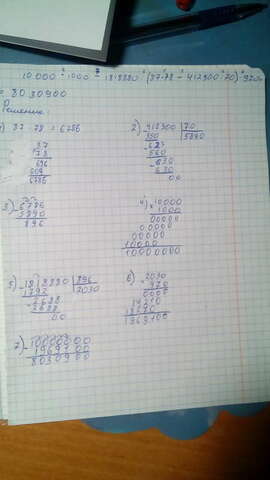 10 000 · 1000 - 1818880 : (87·78 - 412300 : 70) · 970=
= 8030900
Решение:
1) 87 · 78 = 6786
87
78
696
609
6786
2) 412300 | 70
350 | 5890
623
560
630
630
00
3) 6786
5890
896
4) 10000
1000
00000
00000
00000
10000
10000000
5) 1818880 | 896
1792 | 2030
2688
2688
00
6) 2030
970
0000
14210
18270
1969100
7) 10000000
1969100
8030900